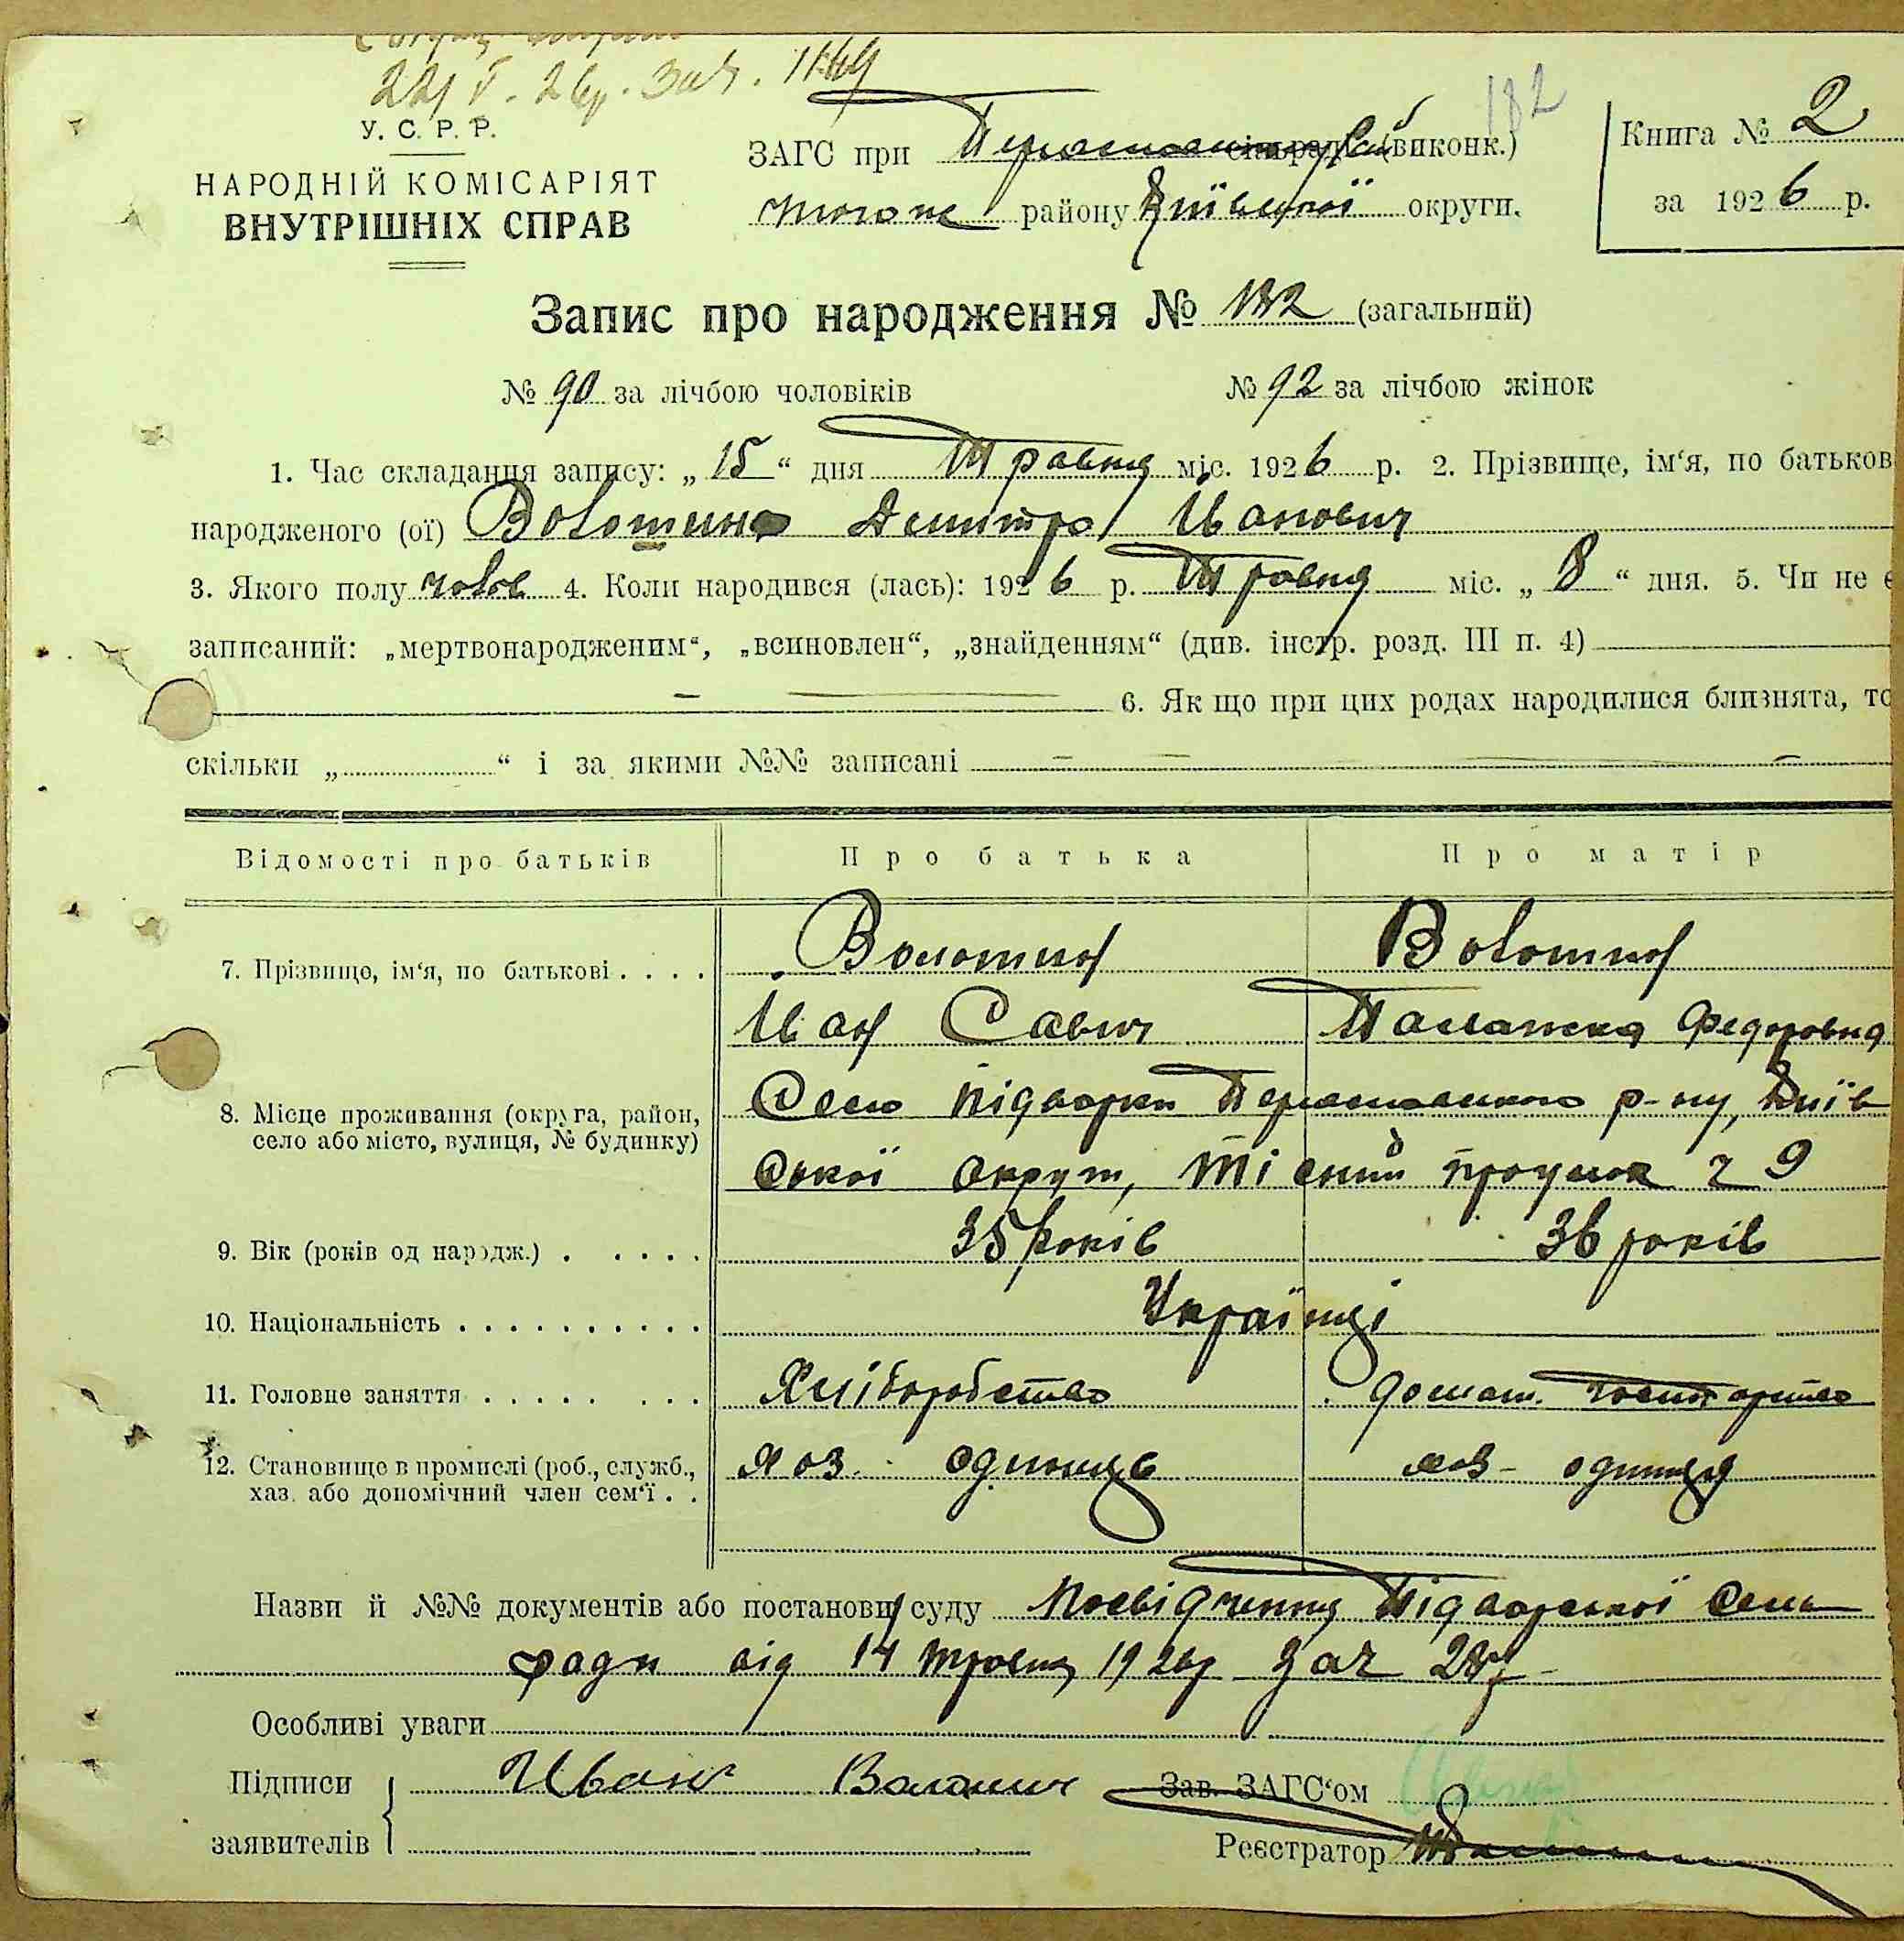 22/V. 26р. Зач. 1169
182
У. С. Р. Р.
НАРОДНІЙ КОМІСАРІЯТ
ВНУТРІШНІХ СПРАВ
ЗАГС при Переяславському Рай(виконк.)
того ж району Київської округи.
Книга № 2
за 1926 р.
Запис про народження № 182 (загальний)
№ 90 за лічбою чоловіків № 92 за лічбою жінок
1. Час складання запису: „15“ дня Травня міс. 1926 р. 2. Прізвище, ім‘я, по батьков
народженого (ої) Волошин Дмитро Іванович
3. Якого полу чолов 4. Коли народився (лась): 1926 р. Травня міс. „8“ дня. 5. Чи не є
записаний: „мертвонародженим“, „всиновлен“, „знайденням“ (див. інстр. розд. III п. 4)
6. Як що при цих родах народилися близнята, то
скільки „ “ і за якими №№ записані
Відомості про батьків Про батька Про матір
7. Прізвище, ім‘я, по батькові . . . . Волошин Волошин
Иван Савич Палажка Федоровна
8. Місце проживання (округа, район, село або місто, вулиця, № будинку) Село Підворки Переяславського р-ну, Київ
ської округи, Тісний проулок ч 9
9. Вік (років од народж.) . . . . . 35 років 36 років
10. Національність . . . . . . . . . . Українці
11. Головне заняття . . . . . . . . Хліборобство домаш. господарство
12. Становище в промислі (роб., служб., хаз. або допомічний член сем‘ї . . хоз. одиниця хоз- одиниця
Назви й №№ документів або постанови суду Посвідчення Підворської Сель
ради від 14 травня 1926р за ч
Особливі уваги
Підписи заявителів Иван Волошин Зав. ЗАГС‘ом
Реєстратор